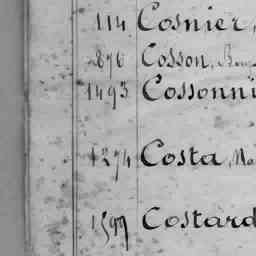 114 Cosnier,
876 Cosson,
1493 Cossonni
1274 Costa, Ma
1599 Costard